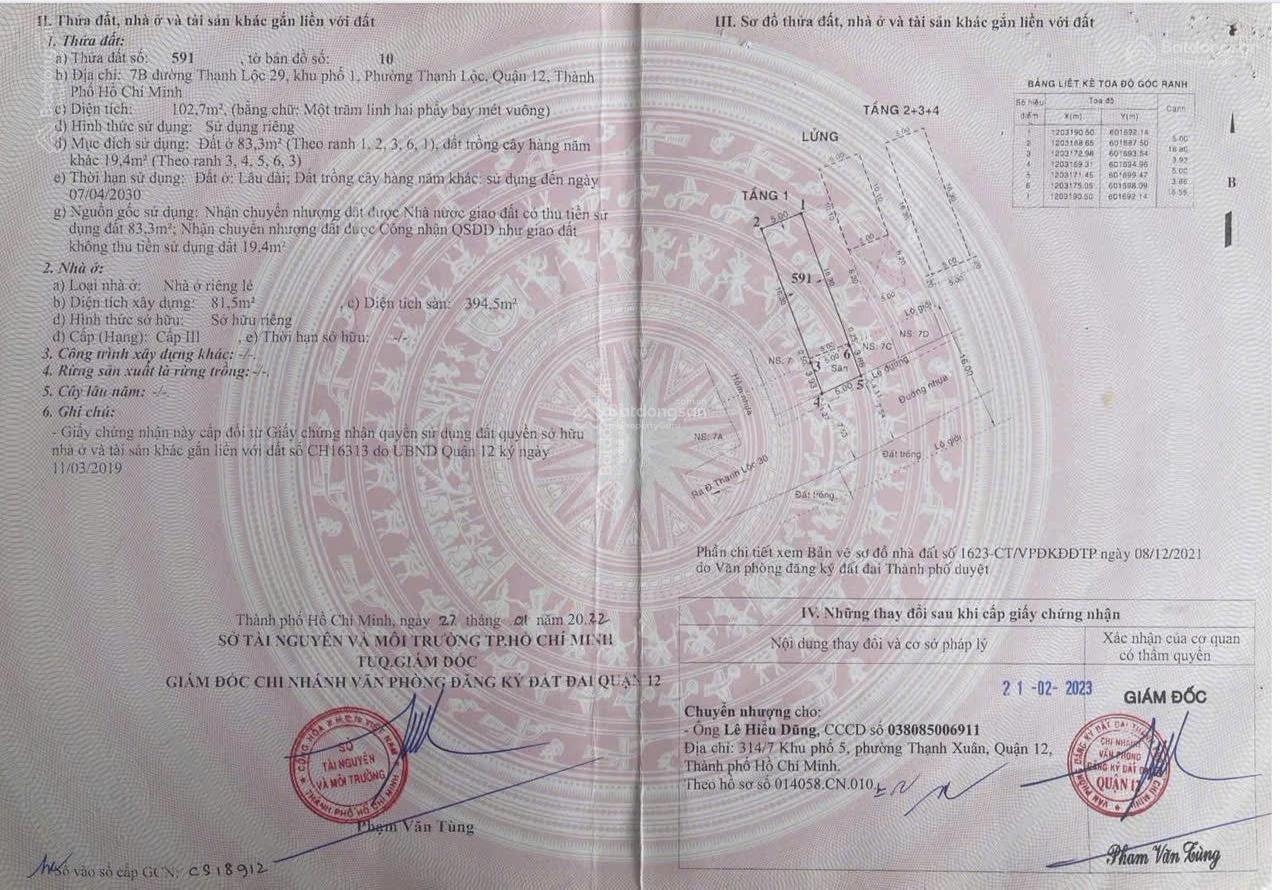 II. Thửa đất, nhà ở và tài sản khác gắn liền với đất
1. Thửa đất:
a) Thửa đất số: 591 , tờ bản đồ số: 10
b) Địa chỉ: 7B đường Thạnh Lộc 29, khu phố 1, Phường Thạnh Lộc, Quận 12, Thành
Phố Hồ Chí Minh
c) Diện tích: 102,7m², (bằng chữ: Một trăm linh hai phẩy bảy mét vuông)
d) Hình thức sử dụng: Sử dụng riêng
đ) Mục đích sử dụng: Đất ở 83,3m² (Theo ranh 1, 2, 3, 6, 1), đất trồng cây hàng năm
khác 19,4m² (Theo ranh 3, 4, 5, 6, 3)
e) Thời hạn sử dụng: Đất ở: Lâu dài; Đất trồng cây hàng năm khác: sử dụng đến ngày
07/04/2030
g) Nguồn gốc sử dụng: Nhận chuyển nhượng đất được Nhà nước giao đất có thu tiền sử
dụng đất 83,3m²; Nhận chuyển nhượng đất được Công nhận QSDĐ như giao đất
không thu tiền sử dụng đất 19,4m²
2. Nhà ở:
a) Loại nhà ở: Nhà ở riêng lẻ
b) Diện tích xây dựng: 81,5m² , c) Diện tích sàn: 394,5m²
d) Hình thức sở hữu: Sở hữu riêng
đ) Cấp (Hạng): Cấp III , e) Thời hạn sở hữu: -/-
3. Công trình xây dựng khác: -/-.
4. Rừng sản xuất là rừng trồng: -/-.
5. Cây lâu năm: -/-
6. Ghi chú:
- Giấy chứng nhận này cấp đổi từ Giấy chứng nhận quyền sử dụng đất quyền sở hữu
nhà ở và tài sản khác gắn liền với đất số CH16313 do UBND Quận 12 ký ngày
11/03/2019
Thành phố Hồ Chí Minh, ngày 27 tháng 01 năm 2022
SỞ TÀI NGUYÊN VÀ MÔI TRƯỜNG TP.HỒ CHÍ MINH
TUQ.GIÁM ĐỐC
GIÁM ĐỐC CHI NHÁNH VĂN PHÒNG ĐĂNG KÝ ĐẤT ĐAI QUẬN 12
SỞ
TÀI NGUYÊN
VÀ MÔI TRƯỜNG
THÀNH PHỐ HỒ CHÍ MINH
Phạm Văn Tùng
Số vào sổ cấp GCN: CS18912
III. Sơ đồ thửa đất, nhà ở và tài sản khác gắn liền với đất
Batdongsan
BẢNG LIỆT KÊ TỌA ĐỘ GÓC RANH
Số hiệu điểm Tọa độ Cạnh
X(m) Y(m)
1 1203190.50 601692.14
5.00
2 1203188.65 601687.50
3 1203172.98 601693.54
3.93
4 1203169.31 601694.96
5.00
5 1203171.45 601699.47
3.86
6 1203175.05 601698.09
1 1203190.50 601692.14
B
TẦNG 2+3+4
LỬNG
TẦNG 1
1
2
5.00
591
16.30
3
4
5
6
Sân
NS: 7
NS: 7C
NS: 7D
NS: 7A
Hẻm nhựa
Lề đường
Đường nhựa
Lộ giới
Lộ giới
16.00
Đất trống
Đất trống
Ra Đ.Thạnh Lộc 30
Batdongsan
Phần chi tiết xem Bản vẽ sơ đồ nhà đất số 1623-CT/VPĐKĐĐTP ngày 08/12/2021
do Văn phòng đăng ký đất đai Thành phố duyệt
IV. Những thay đổi sau khi cấp giấy chứng nhận
Nội dung thay đổi và cơ sở pháp lý
Xác nhận của cơ quan
có thẩm quyền
21-02-2023
GIÁM ĐỐC
Chuyển nhượng cho:
- Ông Lê Hiếu Dũng, CCCD số 038085006911
Địa chỉ: 314/7 Khu phố 5, phường Thạnh Xuân, Quận 12,
Thành phố Hồ Chí Minh.
Theo hồ sơ số 014058.CN.010
CHI NHÁNH
VĂN PHÒNG
ĐĂNG KÝ ĐẤT ĐAI
QUẬN 12
Phạm Văn Tùng